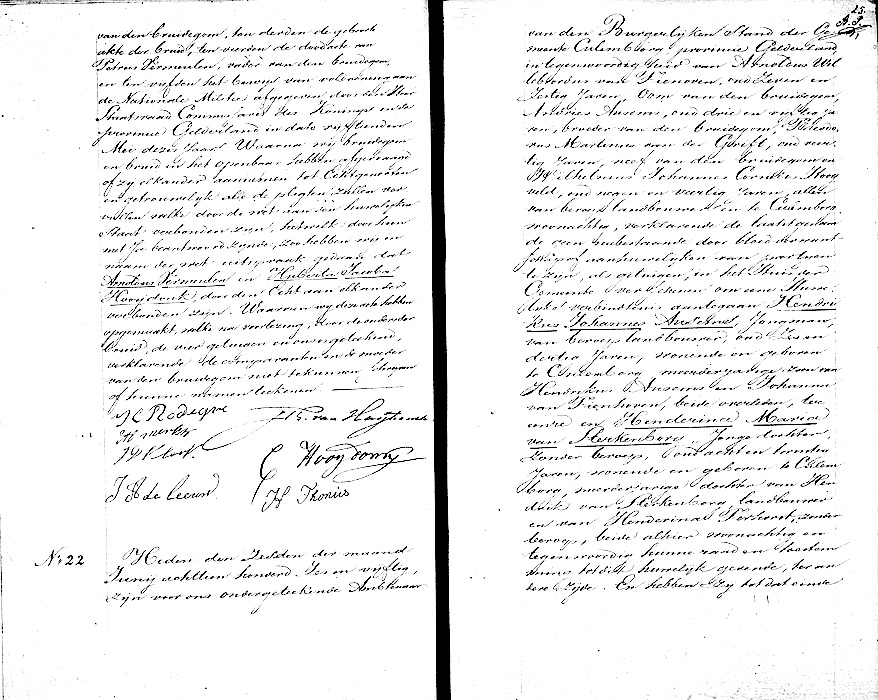 van den bruidegom, ten derden de geboorte
akte der bruid, ten vierden de doodacte van
Petrus Vermeulen, vader van den bruidegom,
en ten vijfden het bewijs van voldoening aan
de Nationale Militie afgegeven door den Heer
Staatsraad Commissaris des Konings in de
provincie Gelderland in dato vijftienden
Mei dezes jaars. Waarna wij bruidegom
en bruid in het openbaar hebben afgevraagd
of zij elkander aannemen tot Echtgenooten
en getrouwelijk alle de pligten zullen ver
vullen welke door de wet aan den huwelijken
Staat verbonden zijn, hetwelk door hen
met Ja beantwoord zijnde, zoo hebben wij in
naam der wet uitspraak gedaan dat
Arnoldus Vermeulen en Huberta Jacoba
Hooijdonk, door den Echt aan elkander
verbonden zijn. Waarvan wij deze acte hebben
opgemaakt, welke na voorlezing, door de moeder
bruid, de vier getuigen en ons geteekend,
verklarende de comparanten en de moeder
van den bruidegom niet te kunnen schrijven
of hunne namen teekenen
J A de Leeuw
H Thonus
No 22
Heden den Zesden der maand
Junij achttien honderd Zes en vijftig,
zijn voor ons ondergeteekende Ambtenaar
25.
van den Burgerlijken Stand der Ge
meente Culemborg, provincie Gelderland,
in tegenwoordigheid van Arnoldus Wil
lebrordus van Fienoven, oud Zeven en
Zestig Jaren, Oom van den bruidegom,
Andries Ansems, oud drie en veertig ja
ren, broeder van den bruidegom, Theodo
rus Martinus van der Grift, oud veer
tig Jaren, neef van den bruidegom en
Wilhelmus Johannes Cornelis Hoog
veld, oud negen en veertig Jaren, allen
van beroep landbouwers en te Culemborg
woonachtig, verklarende de laatstgenoem
de geen embestaande door bloed verwant
schap of aanhuwelijken van partijen
te zijn, als getuigen, in het Huis der
Gemeente verschenen om eene Huwe
lijks verbindtenis aantegaan Hendri
kus Johannes Ansems, Jongman,
van beroep landbouwer, oud Zes en
dertig Jaren, wonende en geboren
te Culemborg meerderjarige zoon van
Hendrikus Ansems en Johanna
van Fienhoven, beide overleden, ter
eenre en Henderina Maria
van Sterkenborg, Jonge dochter,
zonder beroep, oud acht en twintig
Jaren, wonende en geboren te Culem
borg, meerderjarige dochter van Hen
drik van Sterkenborg, landbouwer
en van Henderina Verhorst, zonder
beroep, beide alhier woonachtig en
tegenwoordig hunne raad en toestem
ming tot dit huwelijk gevende, ter an
dere Zijde. En hebben Zij tot dat einde